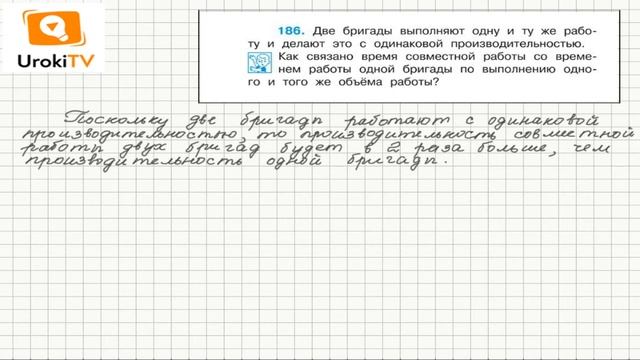 UrokiTV
186. Две бригады выполняют одну и ту же рабо-
ту и делают это с одинаковой производительностью.
Как связано время совместной работы со време-
нем работы одной бригады по выполнению одно-
го и того же объёма работы?
Поскольку две бригады работают с одинаковой
производительностью, то производительность совместной
работы двух бригад будет в 2 раза больше, чем
производительность одной бригады.